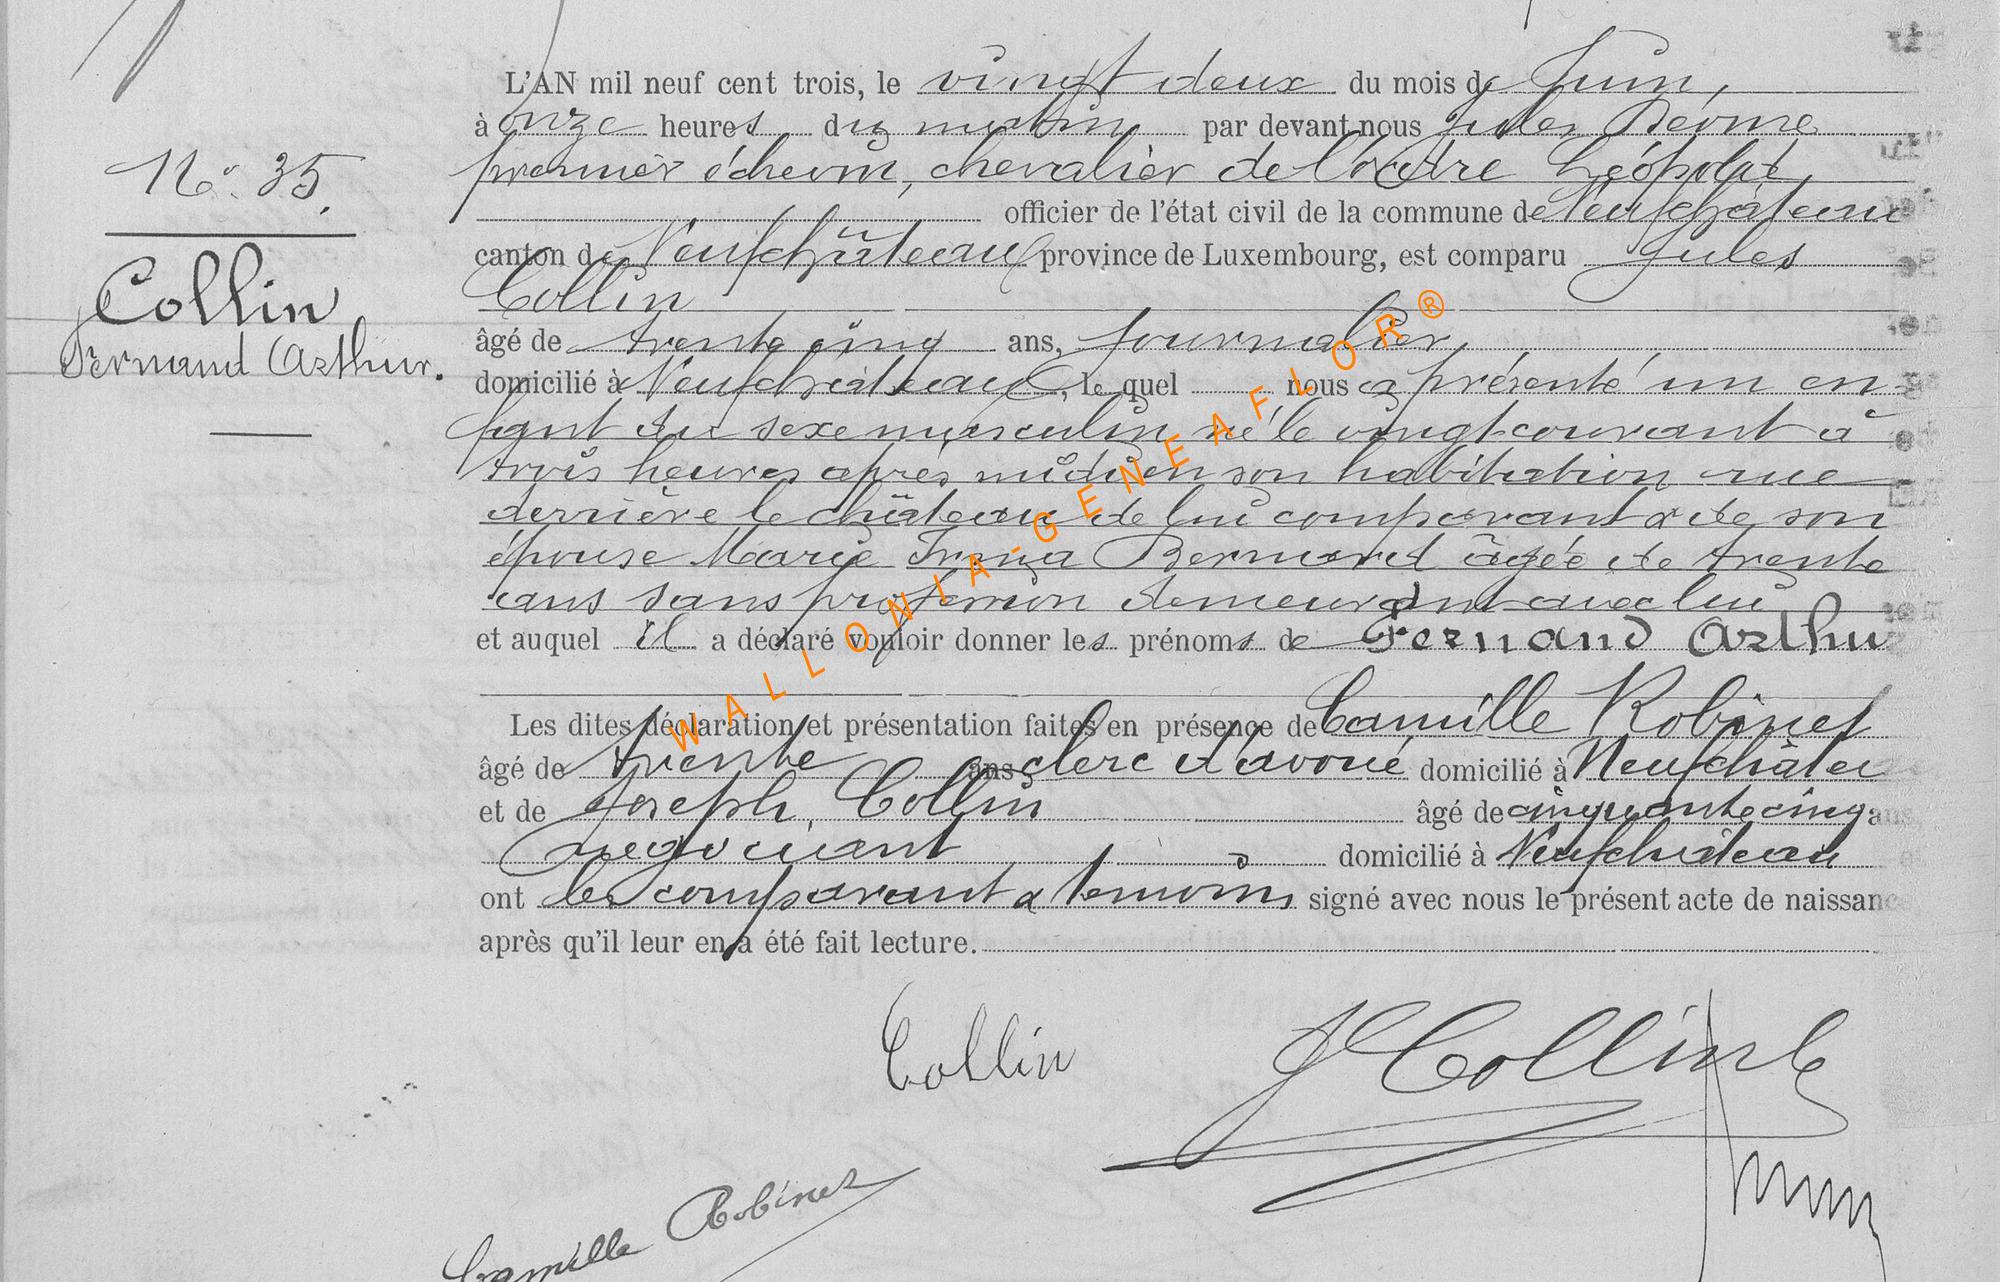 L'AN mil neuf cent trois, le vingt deux du mois de Juin,
à onze heures du matin par devant nous Jules
premier échevin, chevalier de l'ordre Léopold,
officier de l'état civil de la commune de Neufchâteau
canton de Neufchâteau province de Luxembourg, est comparu Jules
Collin
âgé de trente cinq ans, journalier,
domicilié à Neufchâteau, le quel nous a présenté un en-
fant du sexe masculin né le vingt courant à
trois heures après midi en son habitation rue
derrière le château de lui comparant & de son
épouse Marie Irma Bernard âgée de trente
ans sans profession demeurant avec lui
et auquel il a déclaré vouloir donner les prénoms de Fernand Arthur
Les dites déclaration et présentation faites en présence de Camille Robinet
âgé de trente ans clerc d'avoué domicilié à Neufchâteau
et de Joseph Collin âgé de cinquante cinq ans
négociant domicilié à Neufchâteau
ont les comparant & témoins signé avec nous le présent acte de naissance
après qu'il leur en a été fait lecture.
No. 35.
Collin
Fernand Arthur.
WALLONIA-GENEAFLOR®
Collin
J Collin
Camille Robinet